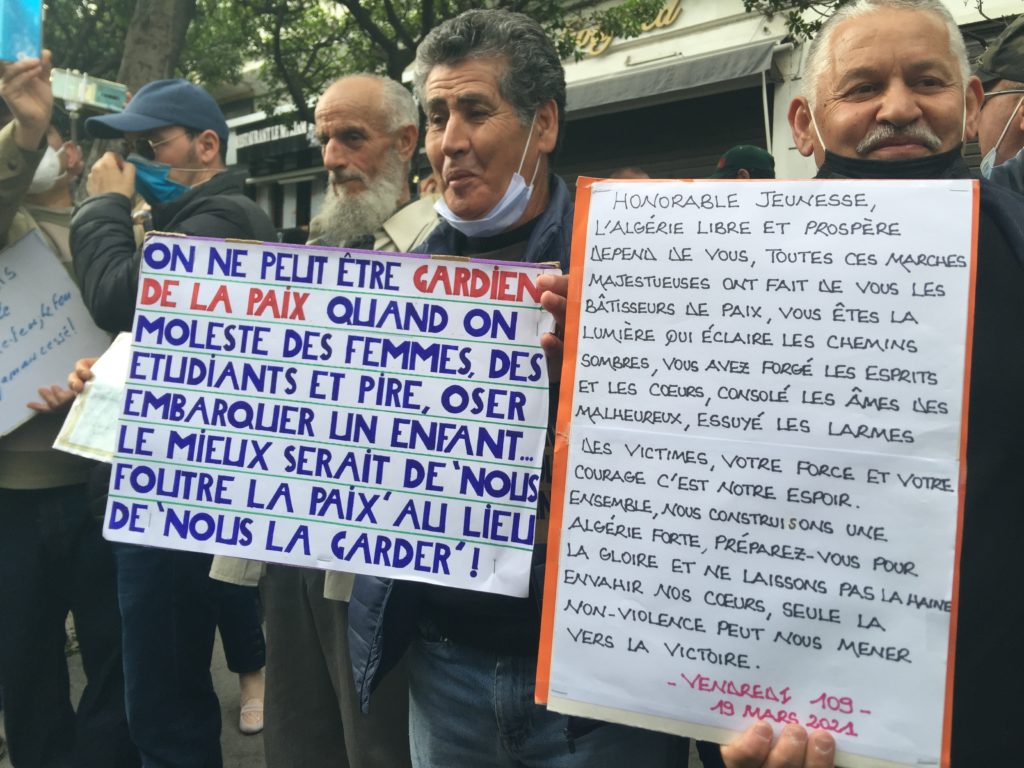 ON NE PEUT ÊTRE GARDIEN
DE LA PAIX QUAND ON
MOLESTE DES FEMMES, DES
ETUDIANTS ET PIRE, OSER
EMBARQUER UN ENFANT...
LE MIEUX SERAIT DE 'NOUS
FOUTRE LA PAIX' AU LIEU
DE 'NOUS LA GARDER' !
HONORABLE JEUNESSE,
L'ALGÉRIE LIBRE ET PROSPÈRE
DEPEND DE VOUS, TOUTES CES MARCHES
MAJESTUEUSES ONT FAIT DE VOUS LES
BÂTISSEURS DE PAIX, VOUS ÊTES LA
LUMIÈRE QUI ÉCLAIRE LES CHEMINS
SOMBRES, VOUS AVEZ FORGÉ LES ESPRITS
ET LES CŒURS, CONSOLÉ LES ÂMES DES
MALHEUREUX, ESSUYÉ LES LARMES
DES VICTIMES, VOTRE FORCE ET VOTRE
COURAGE C'EST NOTRE ESPOIR.
ENSEMBLE, NOUS CONSTRUISONS UNE
ALGÉRIE FORTE, PRÉPAREZ-VOUS POUR
LA GLOIRE ET NE LAISSONS PAS LA HAINE
ENVAHIR NOS CŒURS, SEULE LA
NON-VIOLENCE PEUT NOUS MENER
VERS LA VICTOIRE.
- VENDREDI 109 -
19 MARS 2021